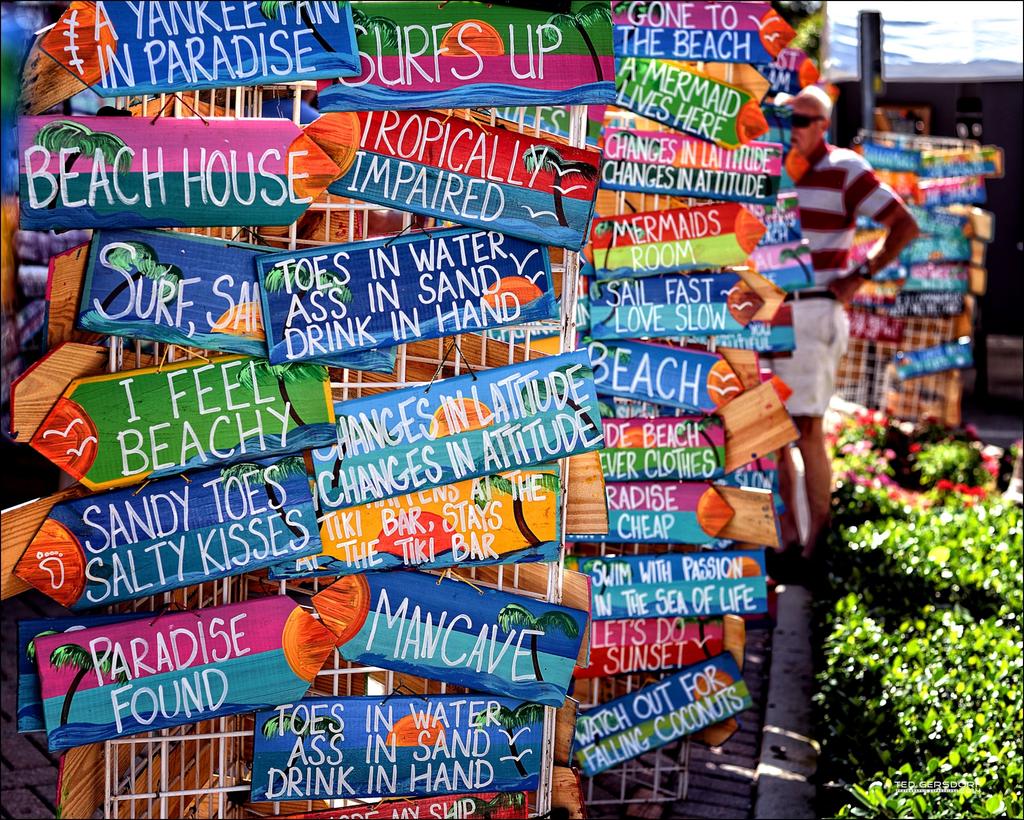 A YANKEE FAN
IN PARADISE
SURFS UP
GONE TO
THE BEACH
A MERMAID
LIVES HERE
BEACH HOUSE
TROPICALLY
IMPAIRED
CHANGES IN LATITUDE
CHANGES IN ATTITUDE
MERMAIDS
ROOM
SURF,
TOES IN WATER
ASS IN SAND
DRINK IN HAND
SAIL FAST
LOVE SLOW
BEACH
I FEEL
BEACHY
CHANGES IN LATITUDE
CHANGES IN ATTITUDE
BEACH
CLOTHES
CHEAP
SANDY TOES
SALTY KISSES
AT THE
TIKI BAR, STAYS
AT THE TIKI BAR
SWIM WITH PASSION
IN THE SEA OF LIFE
LET'S DO
SUNSET
PARADISE
FOUND
MANCAVE
WATCH OUT FOR
FALLING COCONUTS
TOES IN WATER
ASS IN SAND
DRINK IN HAND
MY SHIP
TED GERSDORF